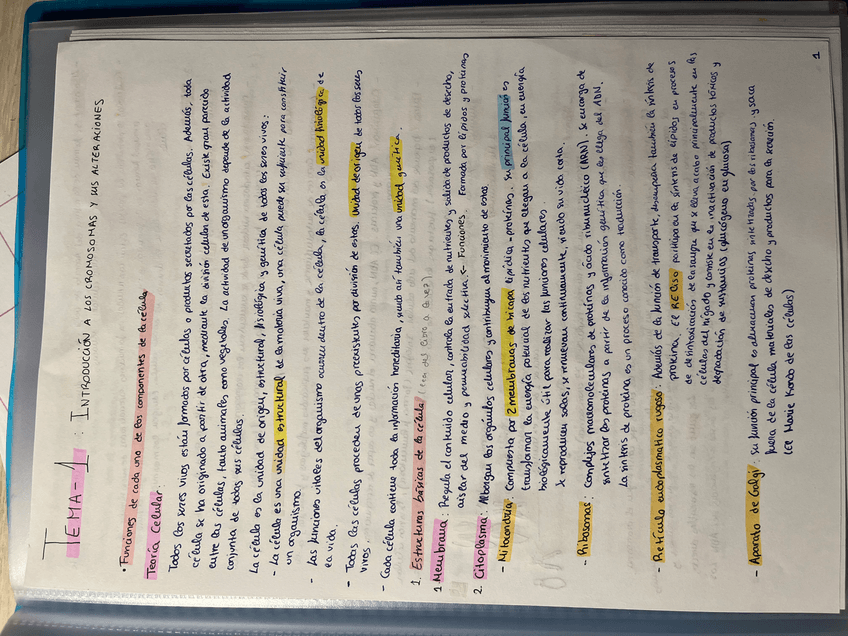 TEMA-1 : INTRODUCCIÓN A LOS CROMOSOMAS Y SUS ALTERACIONES
• Funciones de cada uno de los componentes de la célula
Teoría Celular:
Todos los seres vivos están formados por células o productos secretados por las células. Además, toda
célula se ha originado a partir de otra, mediante la división celular de esta. Existe gran parecido
entre las células, tanto animales como vegetales. La actividad de un organismo depende de la actividad
conjunta de todas sus células.
La célula es la unidad de origen, estructural, fisiológica y genética de todos los seres vivos:
- La célula es una unidad estructural de la materia viva, una célula puede ser suficiente para constituir
un organismo.
- Las funciones vitales del organismo ocurren dentro de la célula, la célula es la unidad fisiológica de
la vida.
- Todas las células proceden de unas preexistentes por división de estas. Unidad de origen de todos los seres
vivos.
- Cada célula contiene toda la información hereditaria, siendo así también una unidad genética.
1. Estructuras básicas de la célula (
1 Membrana: Regula el contenido celular, controla la entrada de nutrientes y salida de productos de desecho,
aislar del medio y permeabilidad selectiva ← Funciones. Formada por lípidos y proteínas
2. Citoplasma: Albergan los orgánulos celulares y contribuyen al movimiento de estos.
- Mitocondria: Compuesta por 2 membranas de bicapa lipídica-proteínas. Su principal función es
transformar la energía potencial de los nutrientes que llegan a la célula, en energía
biológicamente útil para realizar las funciones celulares.
Se reproducen solas, se renuevan continuamente, siendo su vida corta.
- Ribosomas: Complejos macromoleculares de proteínas y ácido ribonucleico (ARN). Se encarga de
sintetizar las proteínas a partir de la información genética que les llega del ADN.
La síntesis de proteína es un proceso conocido como traducción.
- Retículo endoplasmático rugoso: Además de la función de transporte, desempeña también la síntesis de
proteína, El RE liso participa en la síntesis de lípidos en procesos
de destoxificación de la sangre que se lleva a cabo principalmente en las
células del hígado y consiste en la inactivación de productos tóxicos y
degradación de sustancias (glucógeno en glucosa)
- Aparato de Golgi: su función principal es almacenar proteínas sintetizadas por los ribosomas y saca
fuera de la célula materiales de desecho y productos para la secreción.
(la Marie Kondo de las células)
1